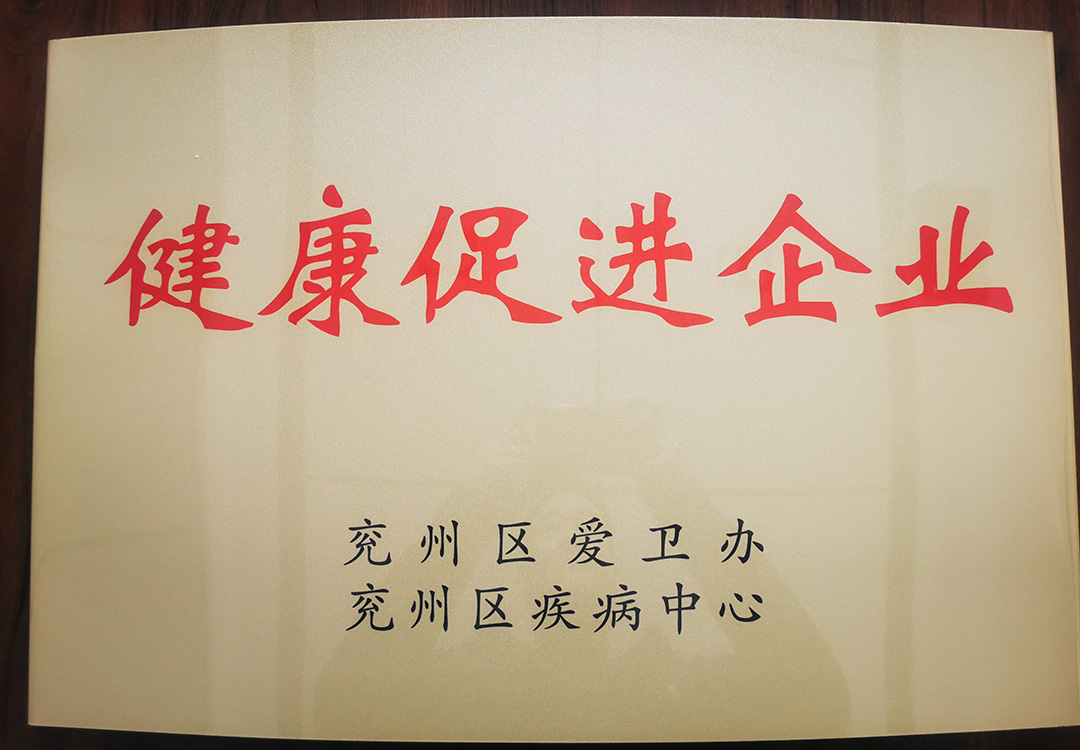 健康促进企业
兖州区爱卫办
兖州区疾病中心